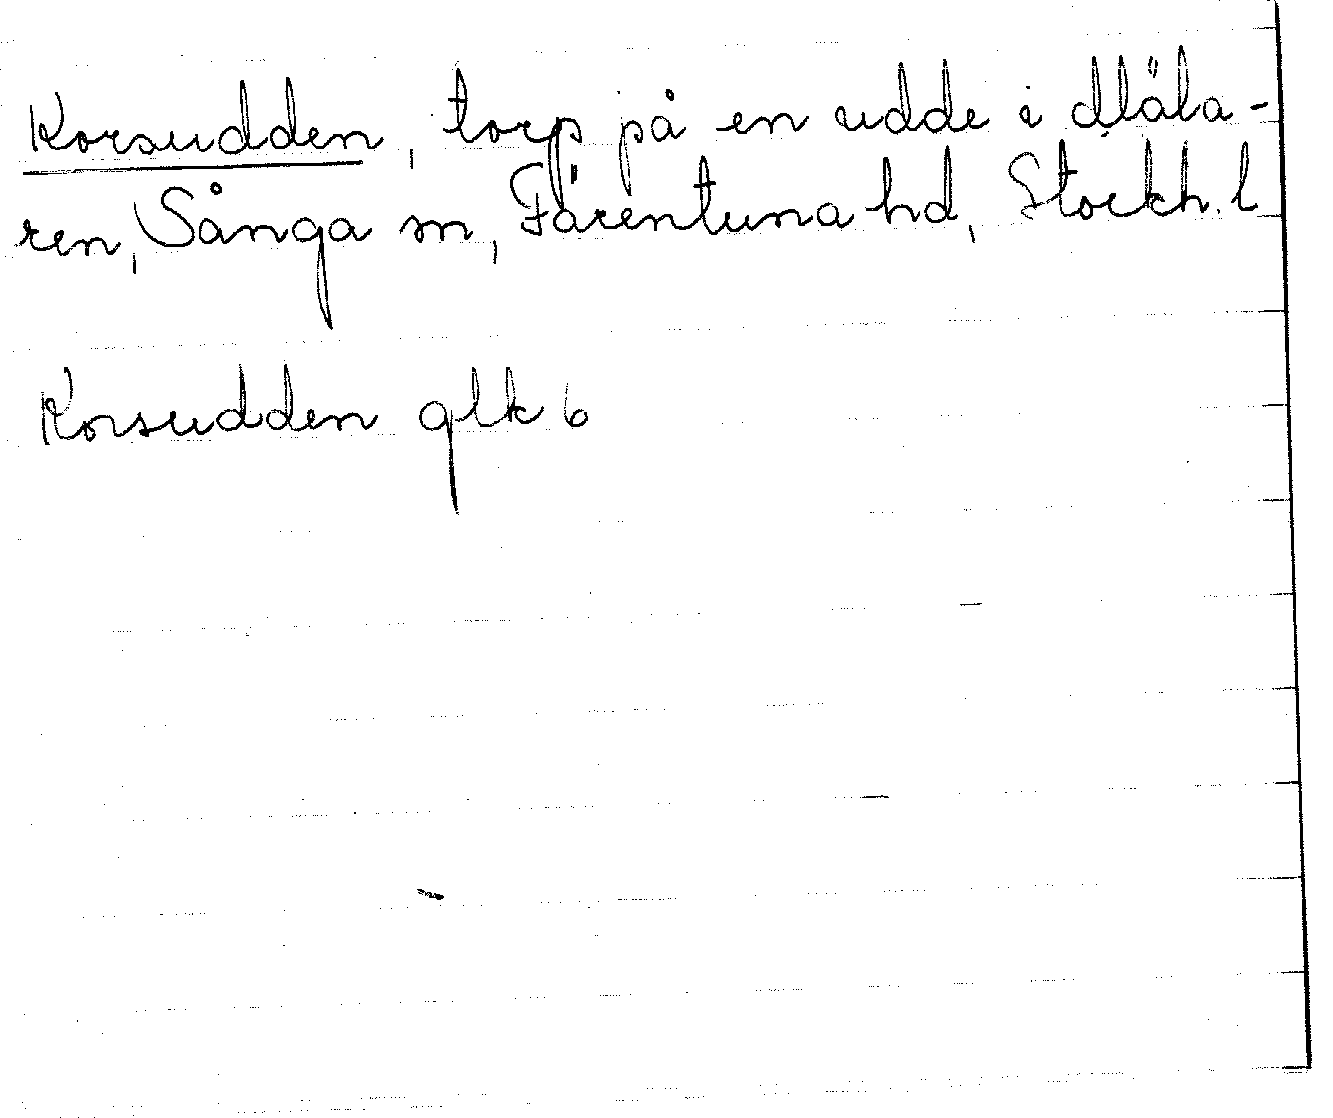 Korsudden, torp på en udde i Mäla-
ren, Sånga sn, Färentuna hd, Stockh. l
Korsudden glk 6